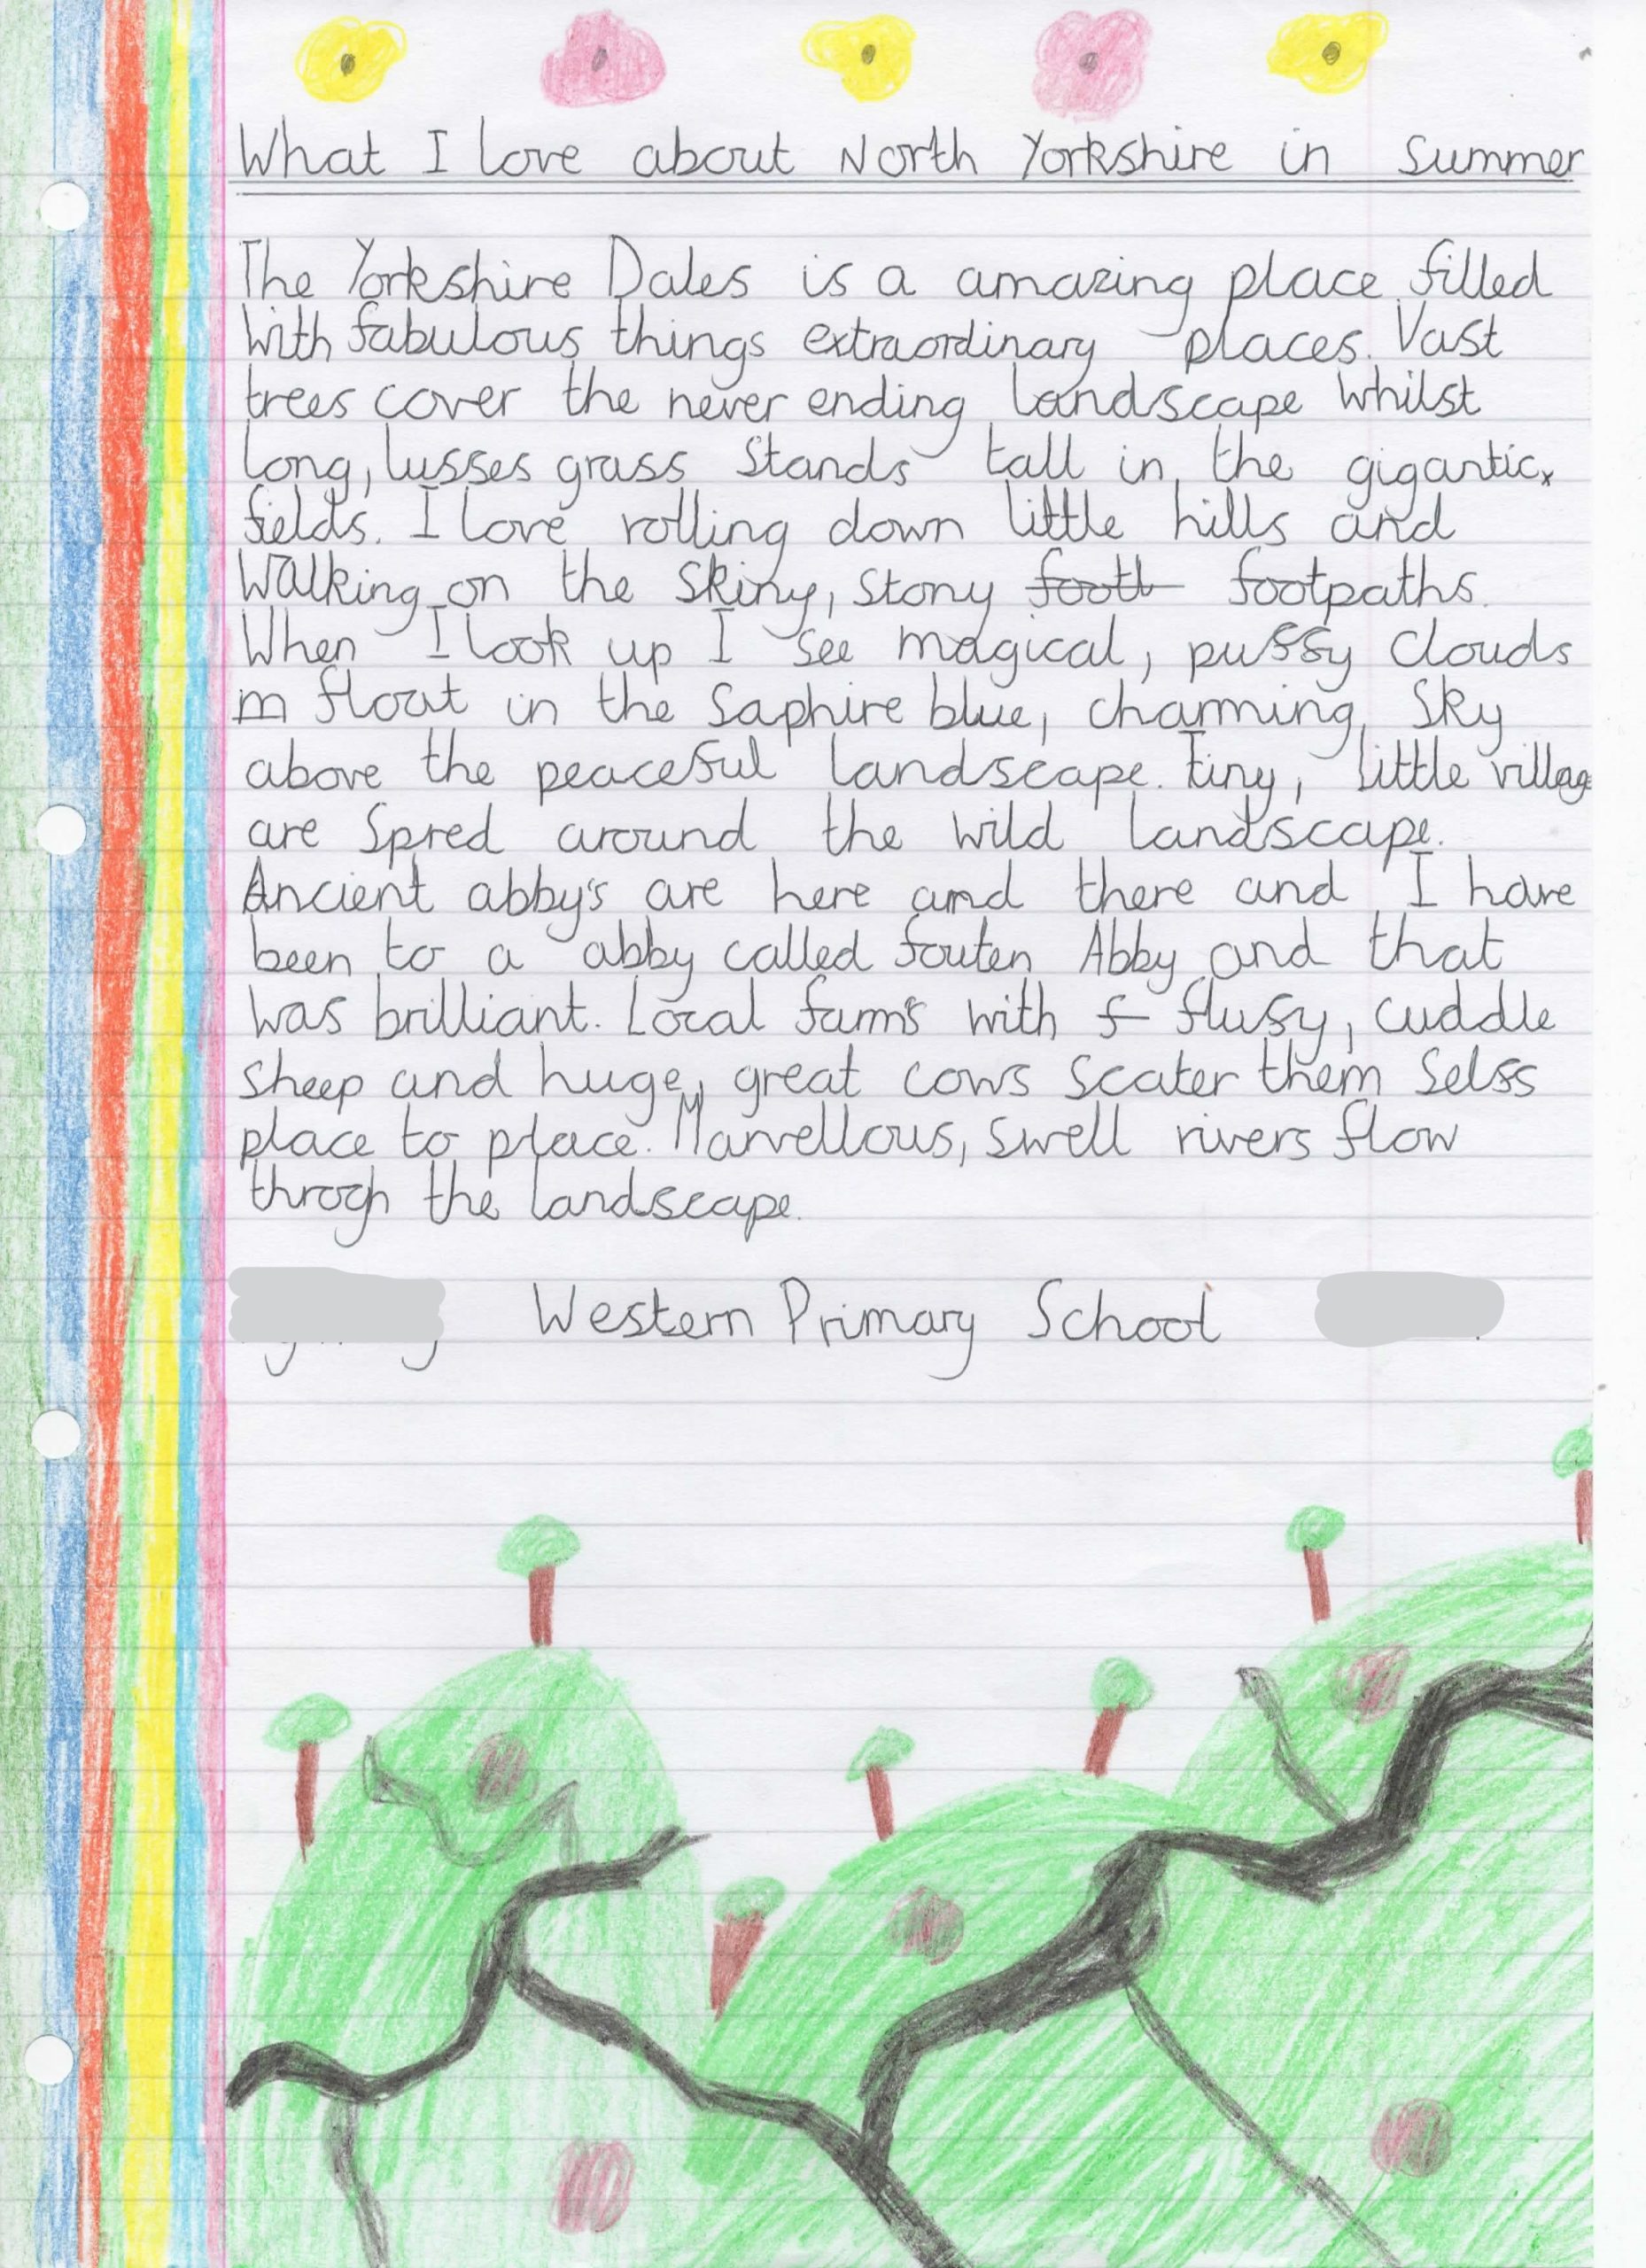 What I love about North Yorkshire in Summer
The Yorkshire Dales is a amazing place filled
with fabulous things extraordinary places. Vast
trees cover the never ending landscape whilst
long, lusses grass stands tall in the gigantic
fields. I love rolling down little hills and
Walking on the skiny, stony foott footpaths.
When I look up I see magical, puffy clouds
m float in the saphire blue, charming sky
above the peaceful landscape. Tiny, little villag
are spred around the wild landscape.
Ancient abby's are here and there and I have
been to a abby called fouten Abby and that
was brilliant. Local farms with f flufy, cuddle
sheep and huge, great cows scater them selfs
place to place. Marvellous, swell rivers flow
throgh the landscape.
Western Primary School